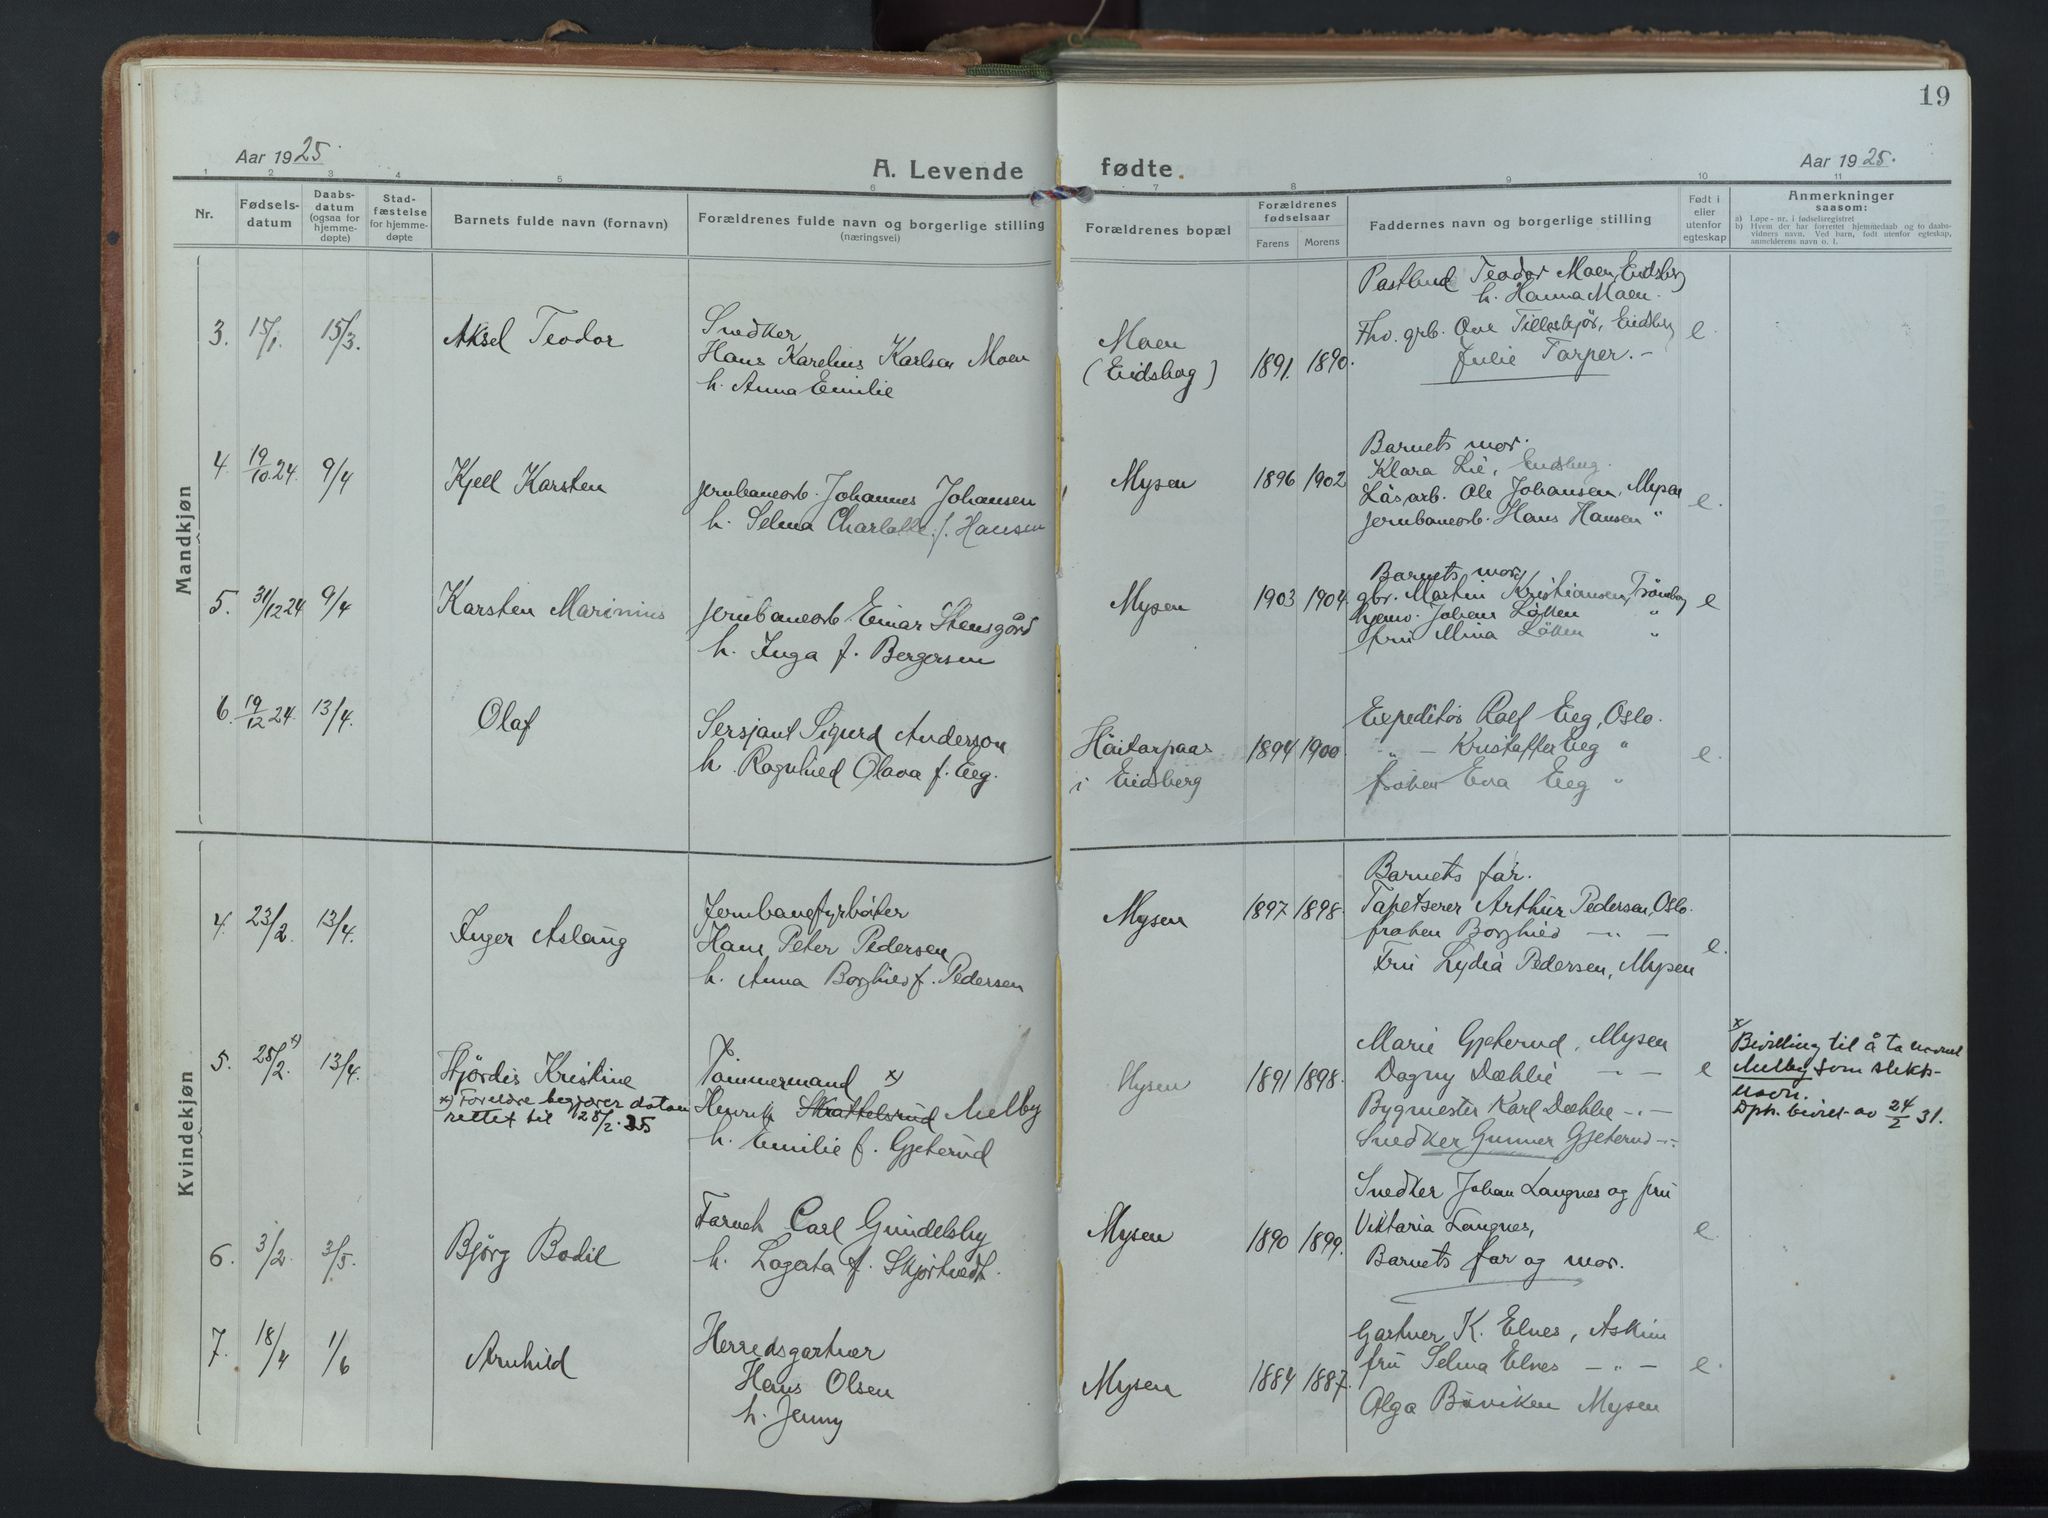 19
Aar 1925
A. Levende fødte.
Aar 1925.
1 2 3 4 5 6 7 8 9 10 11
Nr.
Fødsels-
datum
Daabs-
datum
(ogsaa for
hjemme-
døpte)
Stad-
fæstelse
for hjemme-
døpte
Barnets fulde navn (fornavn)
Forældrenes fulde navn og borgerlige stilling
(næringsvei)
Forældrenes bopæl
Forældrenes
fødselsaar
Farens
Morens
Faddernes navn og borgerlige stilling
Født i
eller
utenfor
egteskap
Anmerkninger
saasom:
a) Løpe-nr. i fødselsregistret
b) Hvem der har forrettet hjemmedaab og to daabs-
vidners navn. Ved barn, født utenfor egteskap,
anmelderens navn o. l.
Mandkjøn
3. 15/1. 15/3. Aksel Teodor
Snedker
Hans Karelius Karlsen Moen
h. Anna Emilie
Moen
(Eidsberg)
1891. 1890.
Postbud Teodor Moen, Eidsberg
h. Hanna Moen.
Fhv. grb. Ove Tilleskjør, Eidsberg
Julie Torper. –
e.
4. 19/10 24. 9/4 Kjell Karsten
Jernbanearb. Johannes Johansen
h. Selma Charlotte f. Hansen
Mysen
1896 1902
Barnets mor.
Klara Lie, Eidsberg.
Løsarb. Ole Johansen, Mysen
Jernbanearb. Hans Hansen "
e.
5. 31/12 24 9/4 Karsten Marinius
Jernbanearb. Einar Stensgård
h. Inga f. Bergersen
Mysen
1903 1904.
Barnets mor,
gbr. Martin Kristiansen, Trömborg
Johans Løken "
fru Mina Løken "
e
6. 19/12 24. 13/4. Olaf
Sersjant Sigurd Anderson
h. Ragnhild Olava f. Eeg.
Höitorpaas
i Eidsberg
1894 1900.
Expeditör Rolf Eeg, Oslo.
" – Kristoffer Eeg "
frøken Eva Eeg "
e.
Kvindekjøn
4. 23/2. 13/4. Inger Aslaug
Jernbanefyrbøter
Hans Peter Pedersen
h. Anna Borghild f. Pedersen
Mysen
1897 1898.
Barnets far.
Tapetserer Arthur Pedersen, Oslo.
frøken Borghild – " –
Fru Lydia Pedersen, Mysen
e.
5. 28/2. x) 13/4. Hjördis Kristine
x) Foreldre begjærer datoen
rettet til 28/2. 25
Tømmermand x)
Henrik Skattelsrud Melby
h. Emilie f. Gjeterud
Mysen
1891 1898.
Marie Gjeterud, Mysen
Dagny Dæhlie – –
Bygmester Karl Dæhlie – " –
Snedker Gunner Gjeterud – " –
e
x/
Bevilling til å ta navnet
Melby som slekts-
navn.
Dpt. bevil. av 24/2 31.
6. 3/2. 3/5. Bjørg Bodil
Carl Gundelsby
h. Lagerta f. Skjørtvedt.
Mysen
1890 1899.
Snedker Johan Langnes og fru
Viktoria Langnes,
Barnets far og mor.
e.
7. 18/4 1/6 Arnhild
Herredsgartner
Hans Olsen
h. Jenny
Mysen
1884 1887.
Gartner K. Elnes, Askim
fru Selma Elnes – " –
Olga Buviken Mysen
e.